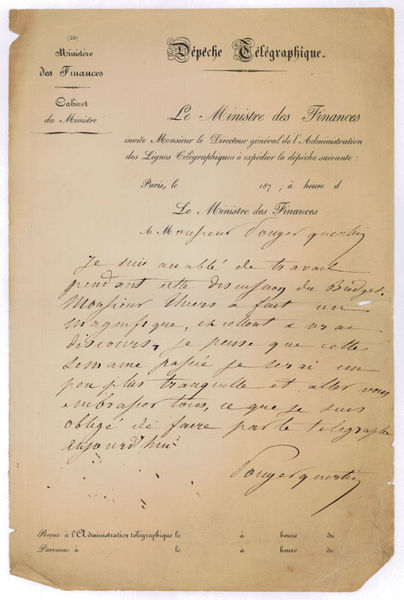 (20)
Ministère
des Finances
Cabinet
du Ministre
Dépêche Télégraphique.
Le Ministre des Finances
invite Monsieur le Directeur général de l'Administration
des Lignes Télégraphiques à expédier la dépêche suivante :
Paris, le 187 ; à heure d
Le Ministre des Finances
A Monsieur Pouyer quertier
Je suis accablé de travail
pendant cette discussion du Budget.
Monsieur Thiers a fait un
magnifique, excellent & vrai
discours, je pense que cette
semaine passée je serai un
peu plus tranquille et aller vous
embrasser tous, ce que je suis
obligé de faire par le telegraphe
aujourd'hui
Pouyer quertier
Reçue à l'Administration télégraphique le à heure du
Parvenue à le à heure du